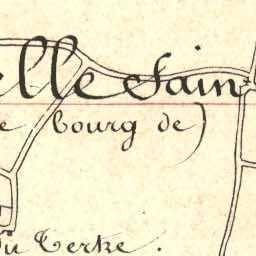 elle Sain
e bourg de)
Du Tertre.